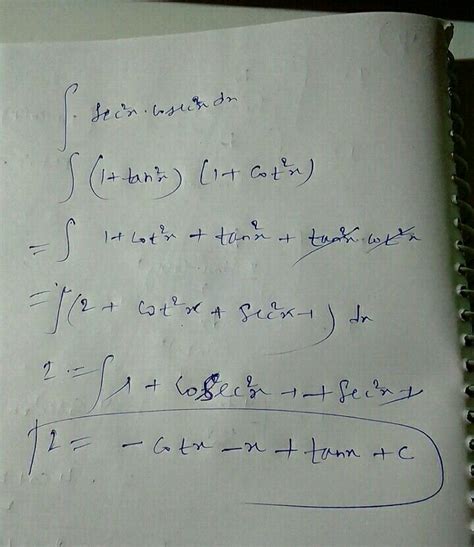 ∫ sec²x · cosec²x dx
∫ (1+tan²x) (1+ cot²x)
= ∫ 1+cot²x + tan²x + tan²x cot²x
= ∫(2 + cot²x + sec²x-1) dx
I = ∫ 1 + cosec²x - 1 + sec²x
I = - cotx - x + tanx + c